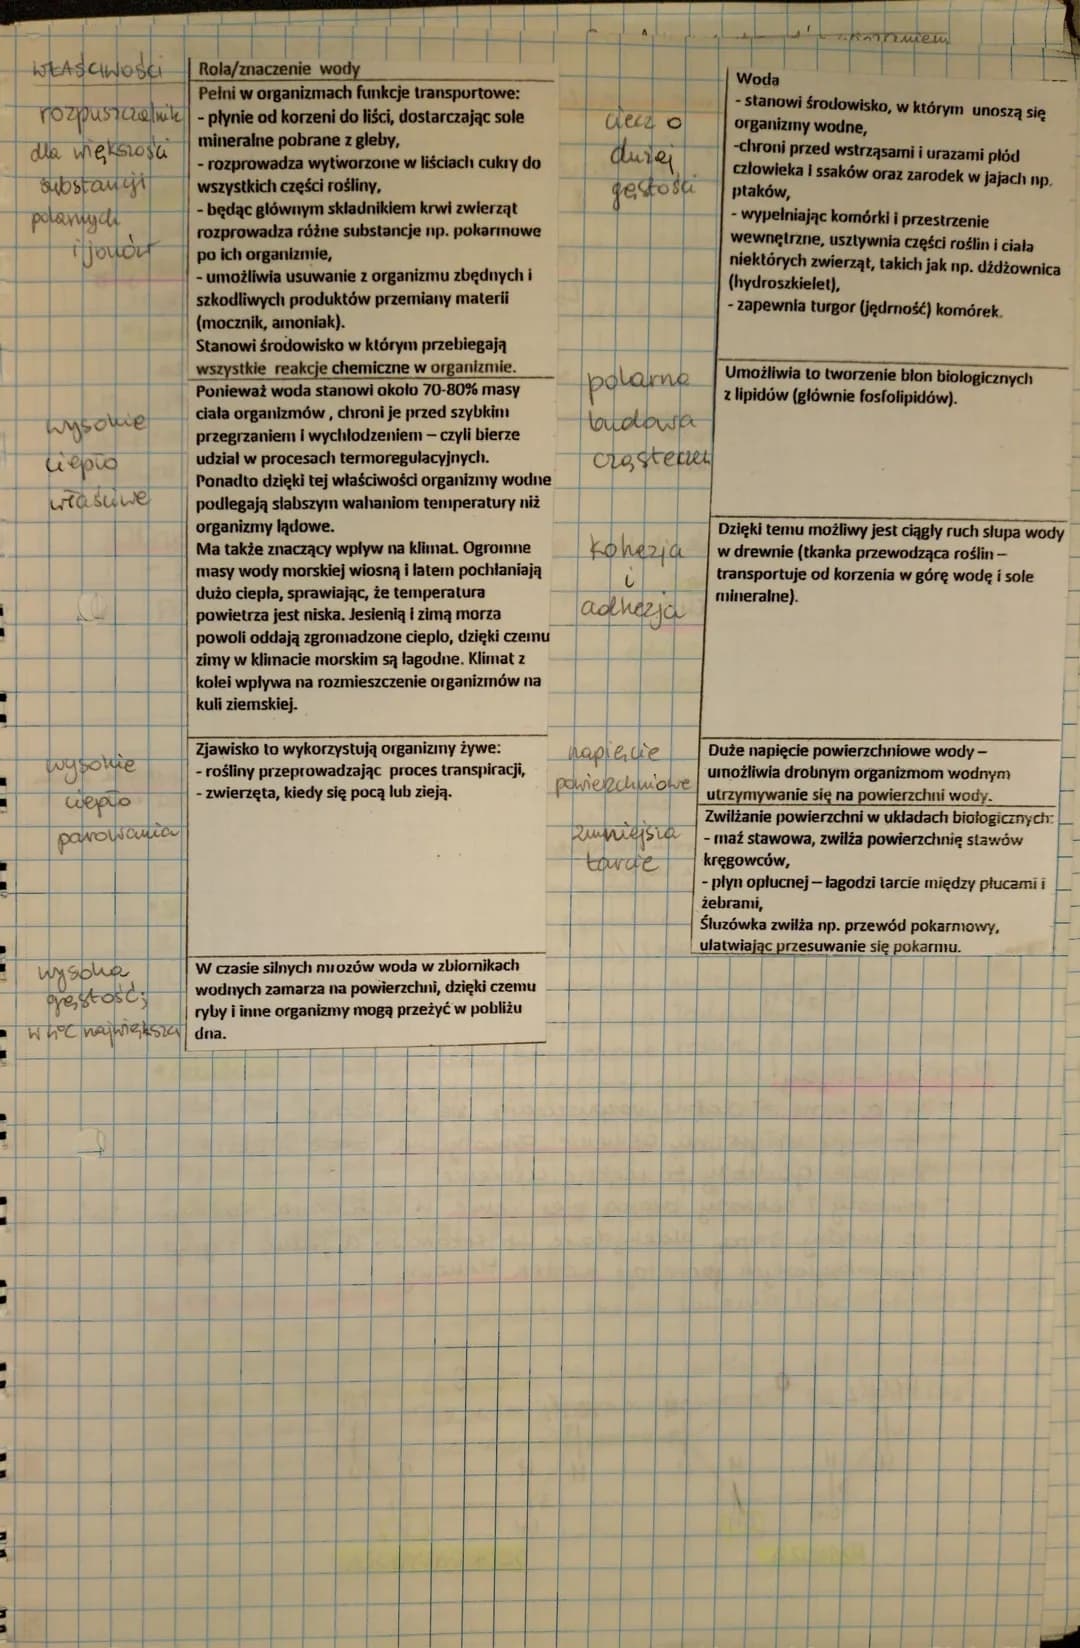 WŁAŚCIWOŚCI
rozpuszczalnik
dla większości
substancji
polarnych
i jonów
Rola/znaczenie wody
Pełni w organizmach funkcje transportowe:
- płynie od korzeni do liści, dostarczając sole
mineralne pobrane z gleby,
- rozprowadza wytworzone w liściach cukry do
wszystkich części rośliny,
- będąc głównym składnikiem krwi zwierząt
rozprowadza różne substancje np. pokarmowe
po ich organizmie,
- umożliwia usuwanie z organizmu zbędnych i
szkodliwych produktów przemiany materii
(mocznik, amoniak).
Stanowi środowisko w którym przebiegają
wszystkie reakcje chemiczne w organizmie.
wysokie
ciepło
właściwe
Ponieważ woda stanowi około 70-80% masy
ciała organizmów , chroni je przed szybkim
przegrzaniem i wychłodzeniem – czyli bierze
udział w procesach termoregulacyjnych.
Ponadto dzięki tej właściwości organizmy wodne
podlegają słabszym wahaniom temperatury niż
organizmy lądowe.
Ma także znaczący wpływ na klimat. Ogromne
masy wody morskiej wiosną i latem pochłaniają
dużo ciepła, sprawiając, że temperatura
powietrza jest niska. Jesienią i zimą morza
powoli oddają zgromadzone ciepło, dzięki czemu
zimy w klimacie morskim są łagodne. Klimat z
kolei wpływa na rozmieszczenie organizmów na
kuli ziemskiej.
wysokie
ciepło
parowania
Zjawisko to wykorzystują organizmy żywe:
- rośliny przeprowadzając proces transpiracji,
- zwierzęta, kiedy się pocą lub zieją.
wysoka
gęstość;
w 4°C największa
W czasie silnych mrozów woda w zbiornikach
wodnych zamarza na powierzchni, dzięki czemu
ryby i inne organizmy mogą przeżyć w pobliżu
dna.
ciecz o
dużej
gęstości
Woda
- stanowi środowisko, w którym unoszą się
organizmy wodne,
-chroni przed wstrząsami i urazami płód
człowieka i ssaków oraz zarodek w jajach np.
ptaków,
- wypełniając komórki i przestrzenie
wewnętrzne, usztywnia części roślin i ciała
niektórych zwierząt, takich jak np. dżdżownica
(hydroszkielet),
- zapewnia turgor (jędrność) komórek.
polarna
budowa
cząsteczek
Umożliwia to tworzenie błon biologicznych
z lipidów (głównie fosfolipidów).
kohezja
i
adhezja
Dzięki temu możliwy jest ciągły ruch słupa wody
w drewnie (tkanka przewodząca roślin –
transportuje od korzenia w górę wodę i sole
mineralne).
napięcie
powierzchniowe
Duże napięcie powierzchniowe wody –
umożliwia drobnym organizmom wodnym
utrzymywanie się na powierzchni wody.
zmniejsza
tarcie
Zwilżanie powierzchni w układach biologicznych:
- maź stawowa, zwilża powierzchnię stawów
kręgowców,
- płyn opłucnej – łagodzi tarcie między płucami i
żebrami,
Śluzówka zwilża np. przewód pokarmowy,
ułatwiając przesuwanie się pokarmu.